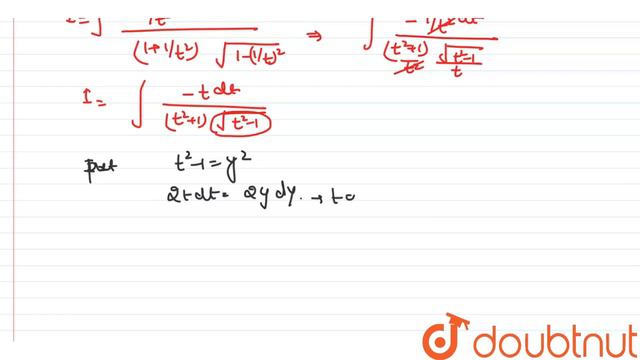 ∫ / (1+1/t²) √1-(1/t)² ⇒ ∫ -1/t² dt / (t²+1)/t² √t²-1/t
I = ∫ -t dt / (t²+1) √t²-1
put t²-1 = y²
2t dt = 2y dy. → t
doubtnut